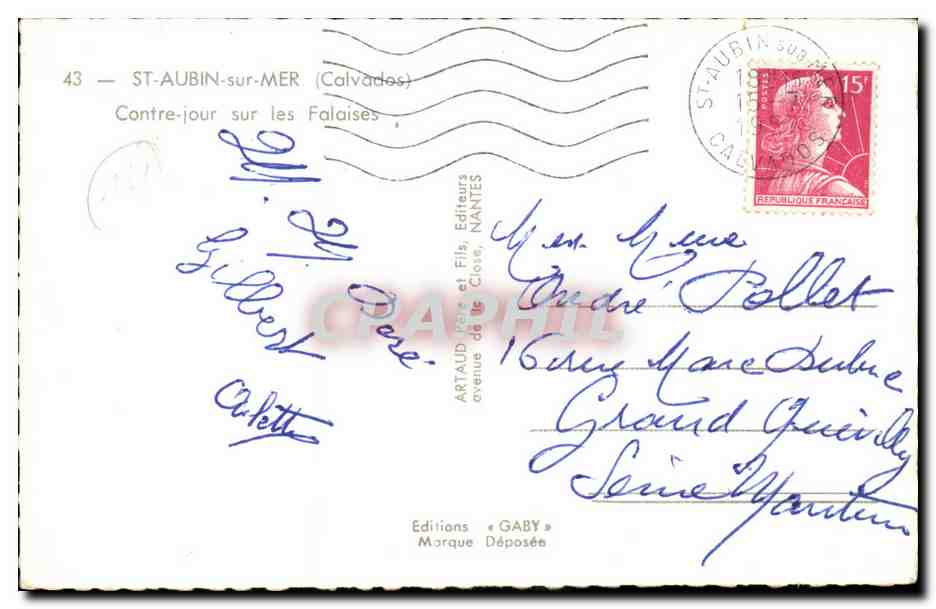 43 — ST-AUBIN-sur-MER (Calvados)
Contre-jour sur les Falaises
M. M
Gilbert
Arlette
ARTAUD Père et Fils, Editeurs
avenue de la Close, NANTES
CPAPHIL
ST-AUBIN SUR MER
CALVADOS
POSTES
15F
REPUBLIQUE FRANÇAISE
Mme
André Pollet
16 rue Marc
Grand Quevilly
Seine Maritime
Editions « GABY »
Marque Déposée